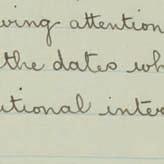 ving attention
the dates wh
utional inter